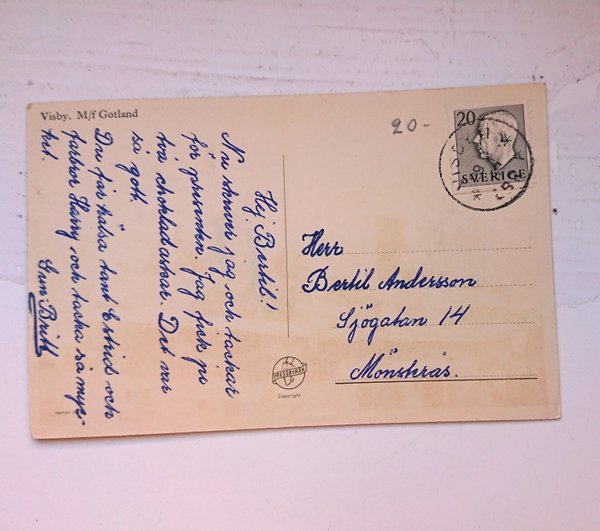 Visby. M/f Gotland
Hej Bertil!
Nu skriver jag och tackar
för presenten. Jag fick ju
två chokladaskar. Det var
så gott.
Du får hälsa tant Estrid och
farbror Harry och tacka så myc-
ket.
Gun Britt
20-
20
SVERIGE
Herr
Bertil Andersson
Sjögatan 14
Mönsterås.
PRESSBYRÅN
Copyright